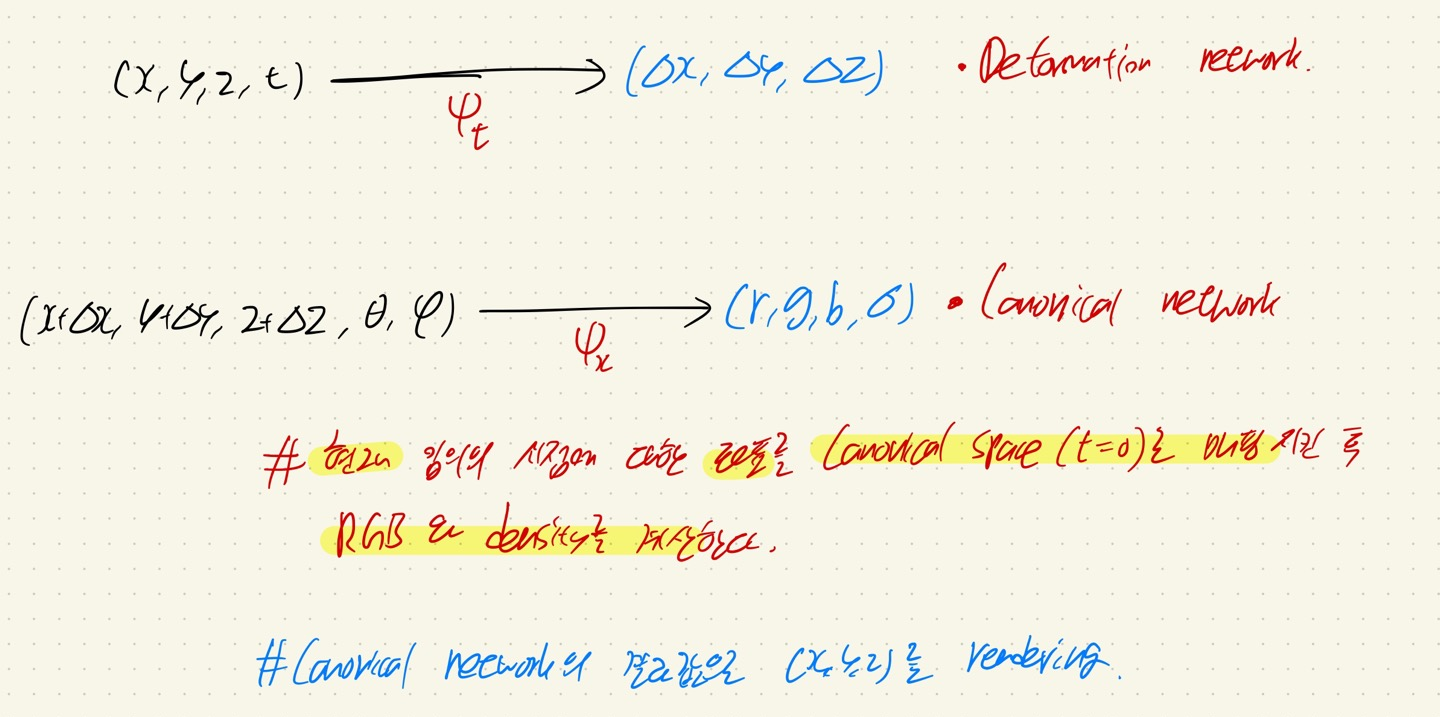 (x, y, z, t) → (Δx, Δy, Δz) • Deformation network.
Ψt
(x+Δx, y+Δy, z+Δz, θ, φ) → (r, g, b, σ) • Canonical network
Ψx
# 현재 임의의 시점에 대한 좌표를 Canonical space (t=0)로 매핑시킨 후
RGB와 density를 계산한다.
# Canonical network의 결과값으로 (x,y,z)를 rendering.